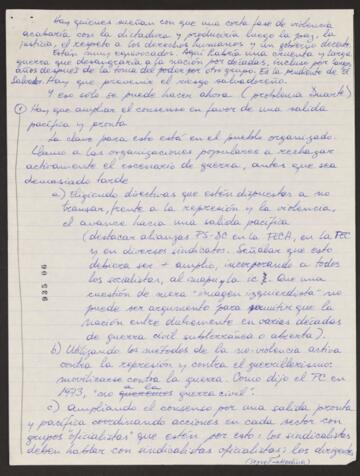 Hay quienes sueñan con que una corta fase de violencia
acabaría con la dictadura y produciría luego la paz, la
justicia, el respeto a los derechos humanos y un gobierno decente.
Están muy equivocados. Aquí habría una cruenta y larga
guerra que desangraría a la nación por décadas, incluso por largos
años después de la toma del poder por otro grupo. Es lo prudente de El
Salvador. Hay que prevenir el riesgo salvadoreño.
Y eso sólo se puede hacer ahora (problema Duarte)
① Hay que ampliar el consenso en favor de una salida
pacífica y pronta
La clave para esto está en el pueblo organizado.
Llamo a las organizaciones populares a rechazar
activamente el escenario de guerra, antes que sea
demasiado tarde
a) Eligiendo directivas que estén dispuestas a no
transar, frente a la represión y la violencia,
el avance hacia una salida pacífica
(destacar alianzas PS-DC en la FECH, en la FEC
y en diversos sindicatos. Señalar que esto
debiera ser + amplio, incorporando a todos
los socialistas, al mapu, la ic. Que una
cuestión de mera "imagen izquierdista" no
puede ser argumento para permitir que la
nación entre dulcemente en varias décadas
de guerra civil subterránea o abierta).
b) Utilizando los métodos de la no-violencia activa
contra la represión y contra el guerrillerismo:
movilizarse contra la guerra. Como dijo el PC en
1973, "no a la guerra civil".
c) Ampliando el consenso por una salida pronta
y pacífica coordinando acciones en cada sector con
grupos "oficialistas" que estén por esto: los sindicalistas
deben hablar con sindicalistas oficialistas; los dirigentes
935 06